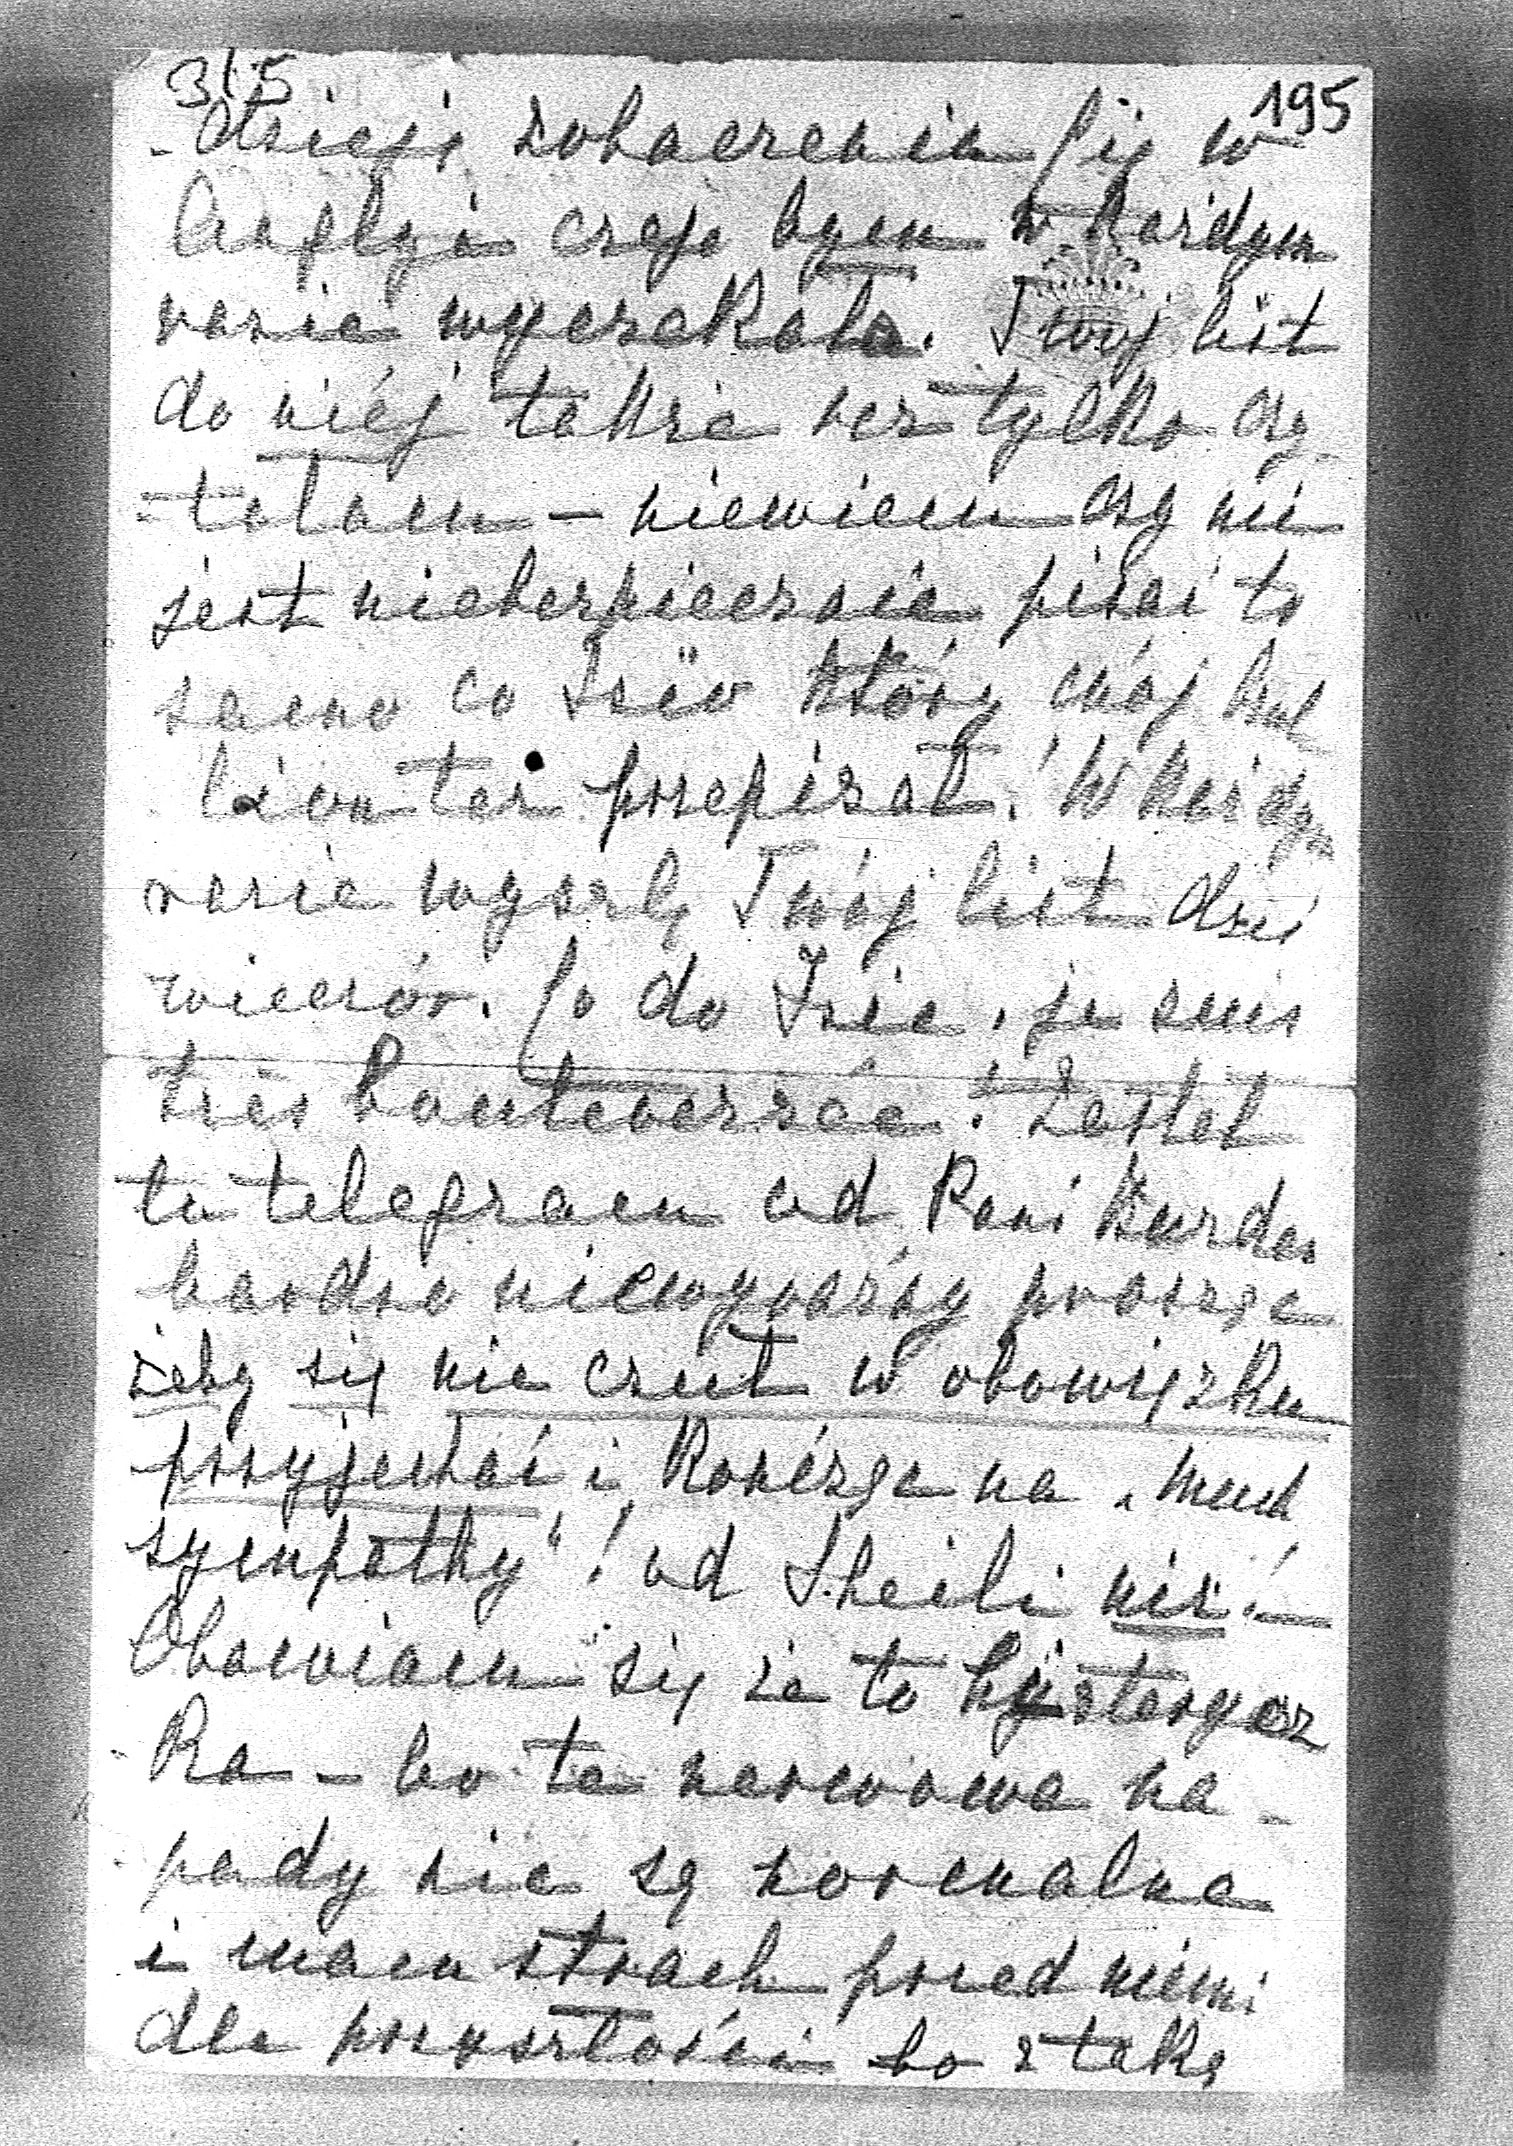 315
195
-dzieję zobaczenia Cię w
Anglji czego bym w każdym
razie wyczekała. Twój list
do niéj także też tylko czy-
-tałam – niewiem czy nie
jest niebezpiecznie pisać to
samo co Isiu który mój
też przepisał! W każdym
razie wyszlę Twój list dziś
wieczór. Co do Isie, je suis
très bouleversée! Zastał
tu telegram od Pani
bardzo niewyraźny prosząc
żeby się nie czuł w obowiązku
przyjechać i kończąc na „much
sympathy"! od Sheili nic! –
Obawiam się że to hysterycz
ka – bo te nerwowe na-
pady nie są normalne
i mam strach przed niemi
dla przyszłości bo z taką